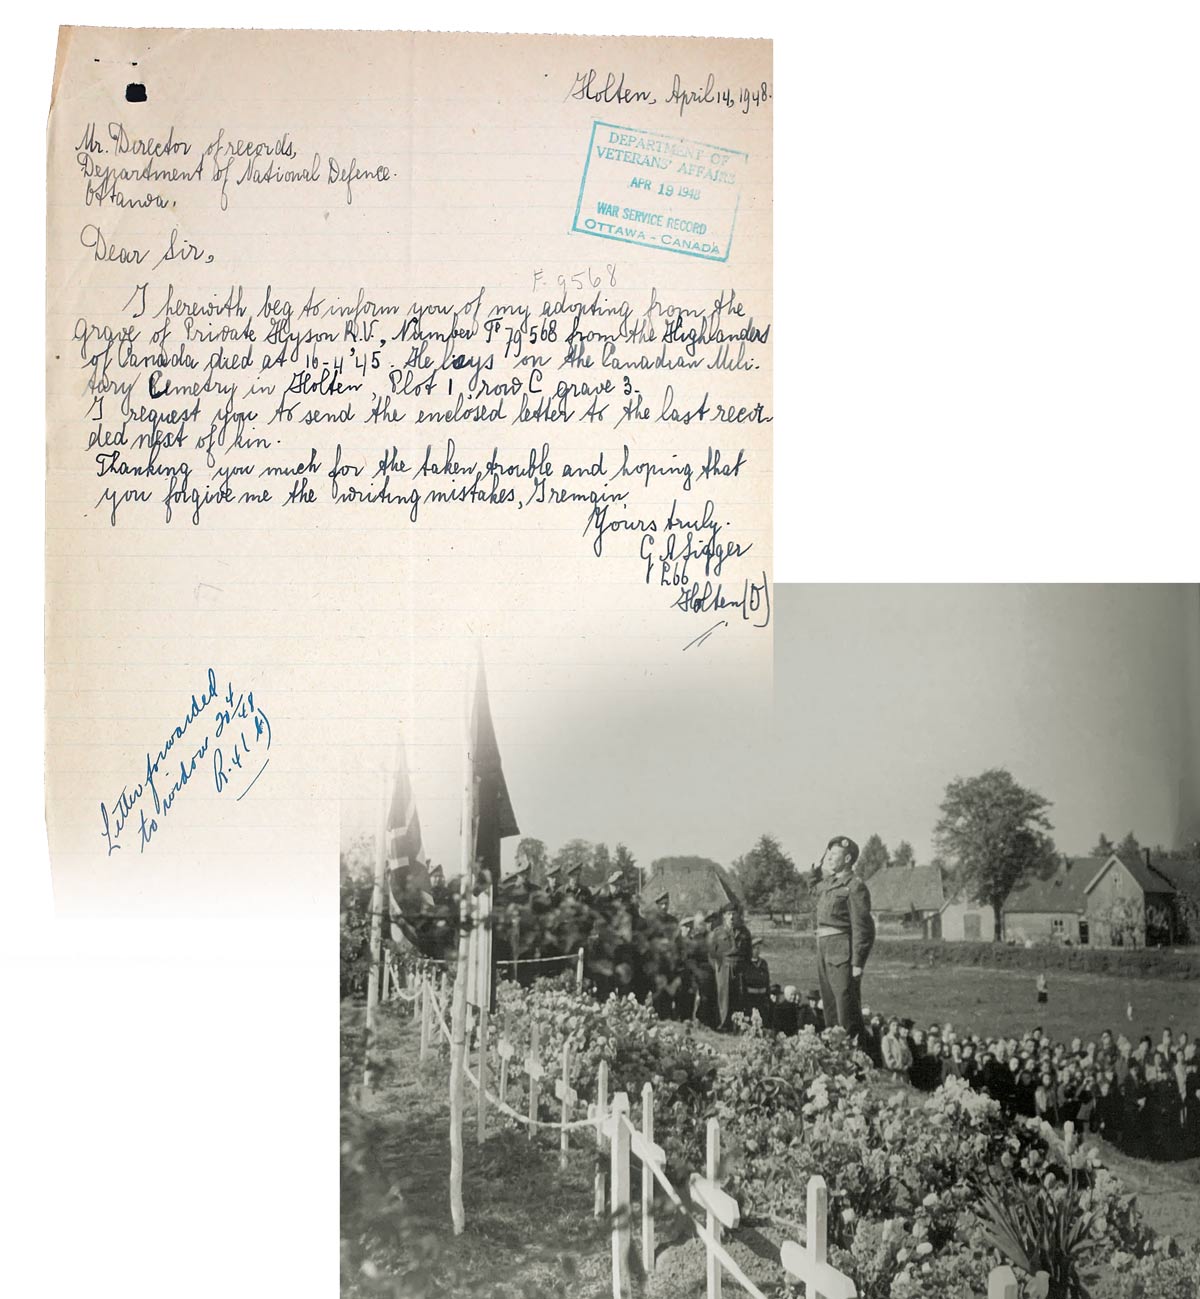 Holten, April 14, 1948.
Mr. Director of records,
Department of National Defence.
Ottawa.
DEPARTMENT OF
VETERANS' AFFAIRS
APR 19 1948
WAR SERVICE RECORD
OTTAWA - CANADA
Dear Sir,
F. 9568
I herewith beg to inform you of my adopting from the
grave of Private Hyson R.V., Number F 79568 from the Highlanders
of Canada died at 16-4-'45. He lays on the Canadian Mili-
tary Cemetry in Holten, Plot 1, row C grave 3.
I request you to send the enclosed letter to the last recor-
ded next of kin.
Thanking you much for the taken trouble and hoping that
you forgive me the writing mistakes, I remain,
Yours truly.
G A
L66
Holten (O)
Letter forwarded
to widow 20/4/48